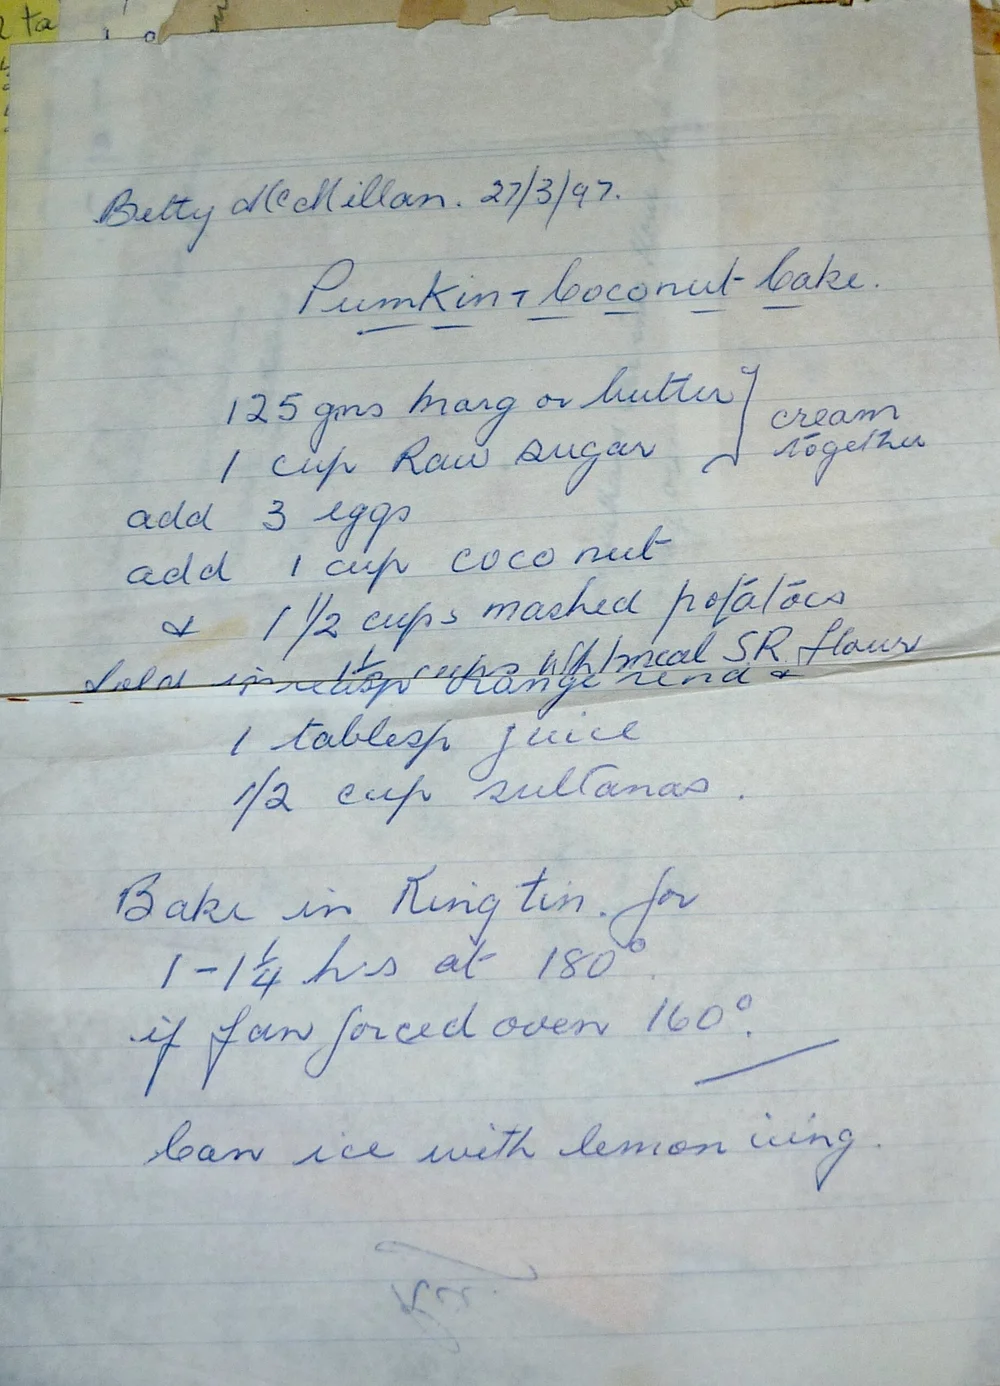 2 ta
Betty McMillan. 27/3/97.
Pumkin + Coconut Cake.
125 gms Marg or butter } cream
1 cup Raw sugar } together
add 3 eggs
add 1 cup coconut
& 1 1/2 cups mashed potatoes
fold in 1 1/2 cups meal SR flour
orange rind &
1 tablesp juice
1/2 cup sultanas.
Bake in Ring tin. for
1-1 1/4 hrs at 180°.
if fan forced oven 160°.
Can ice with lemon icing.